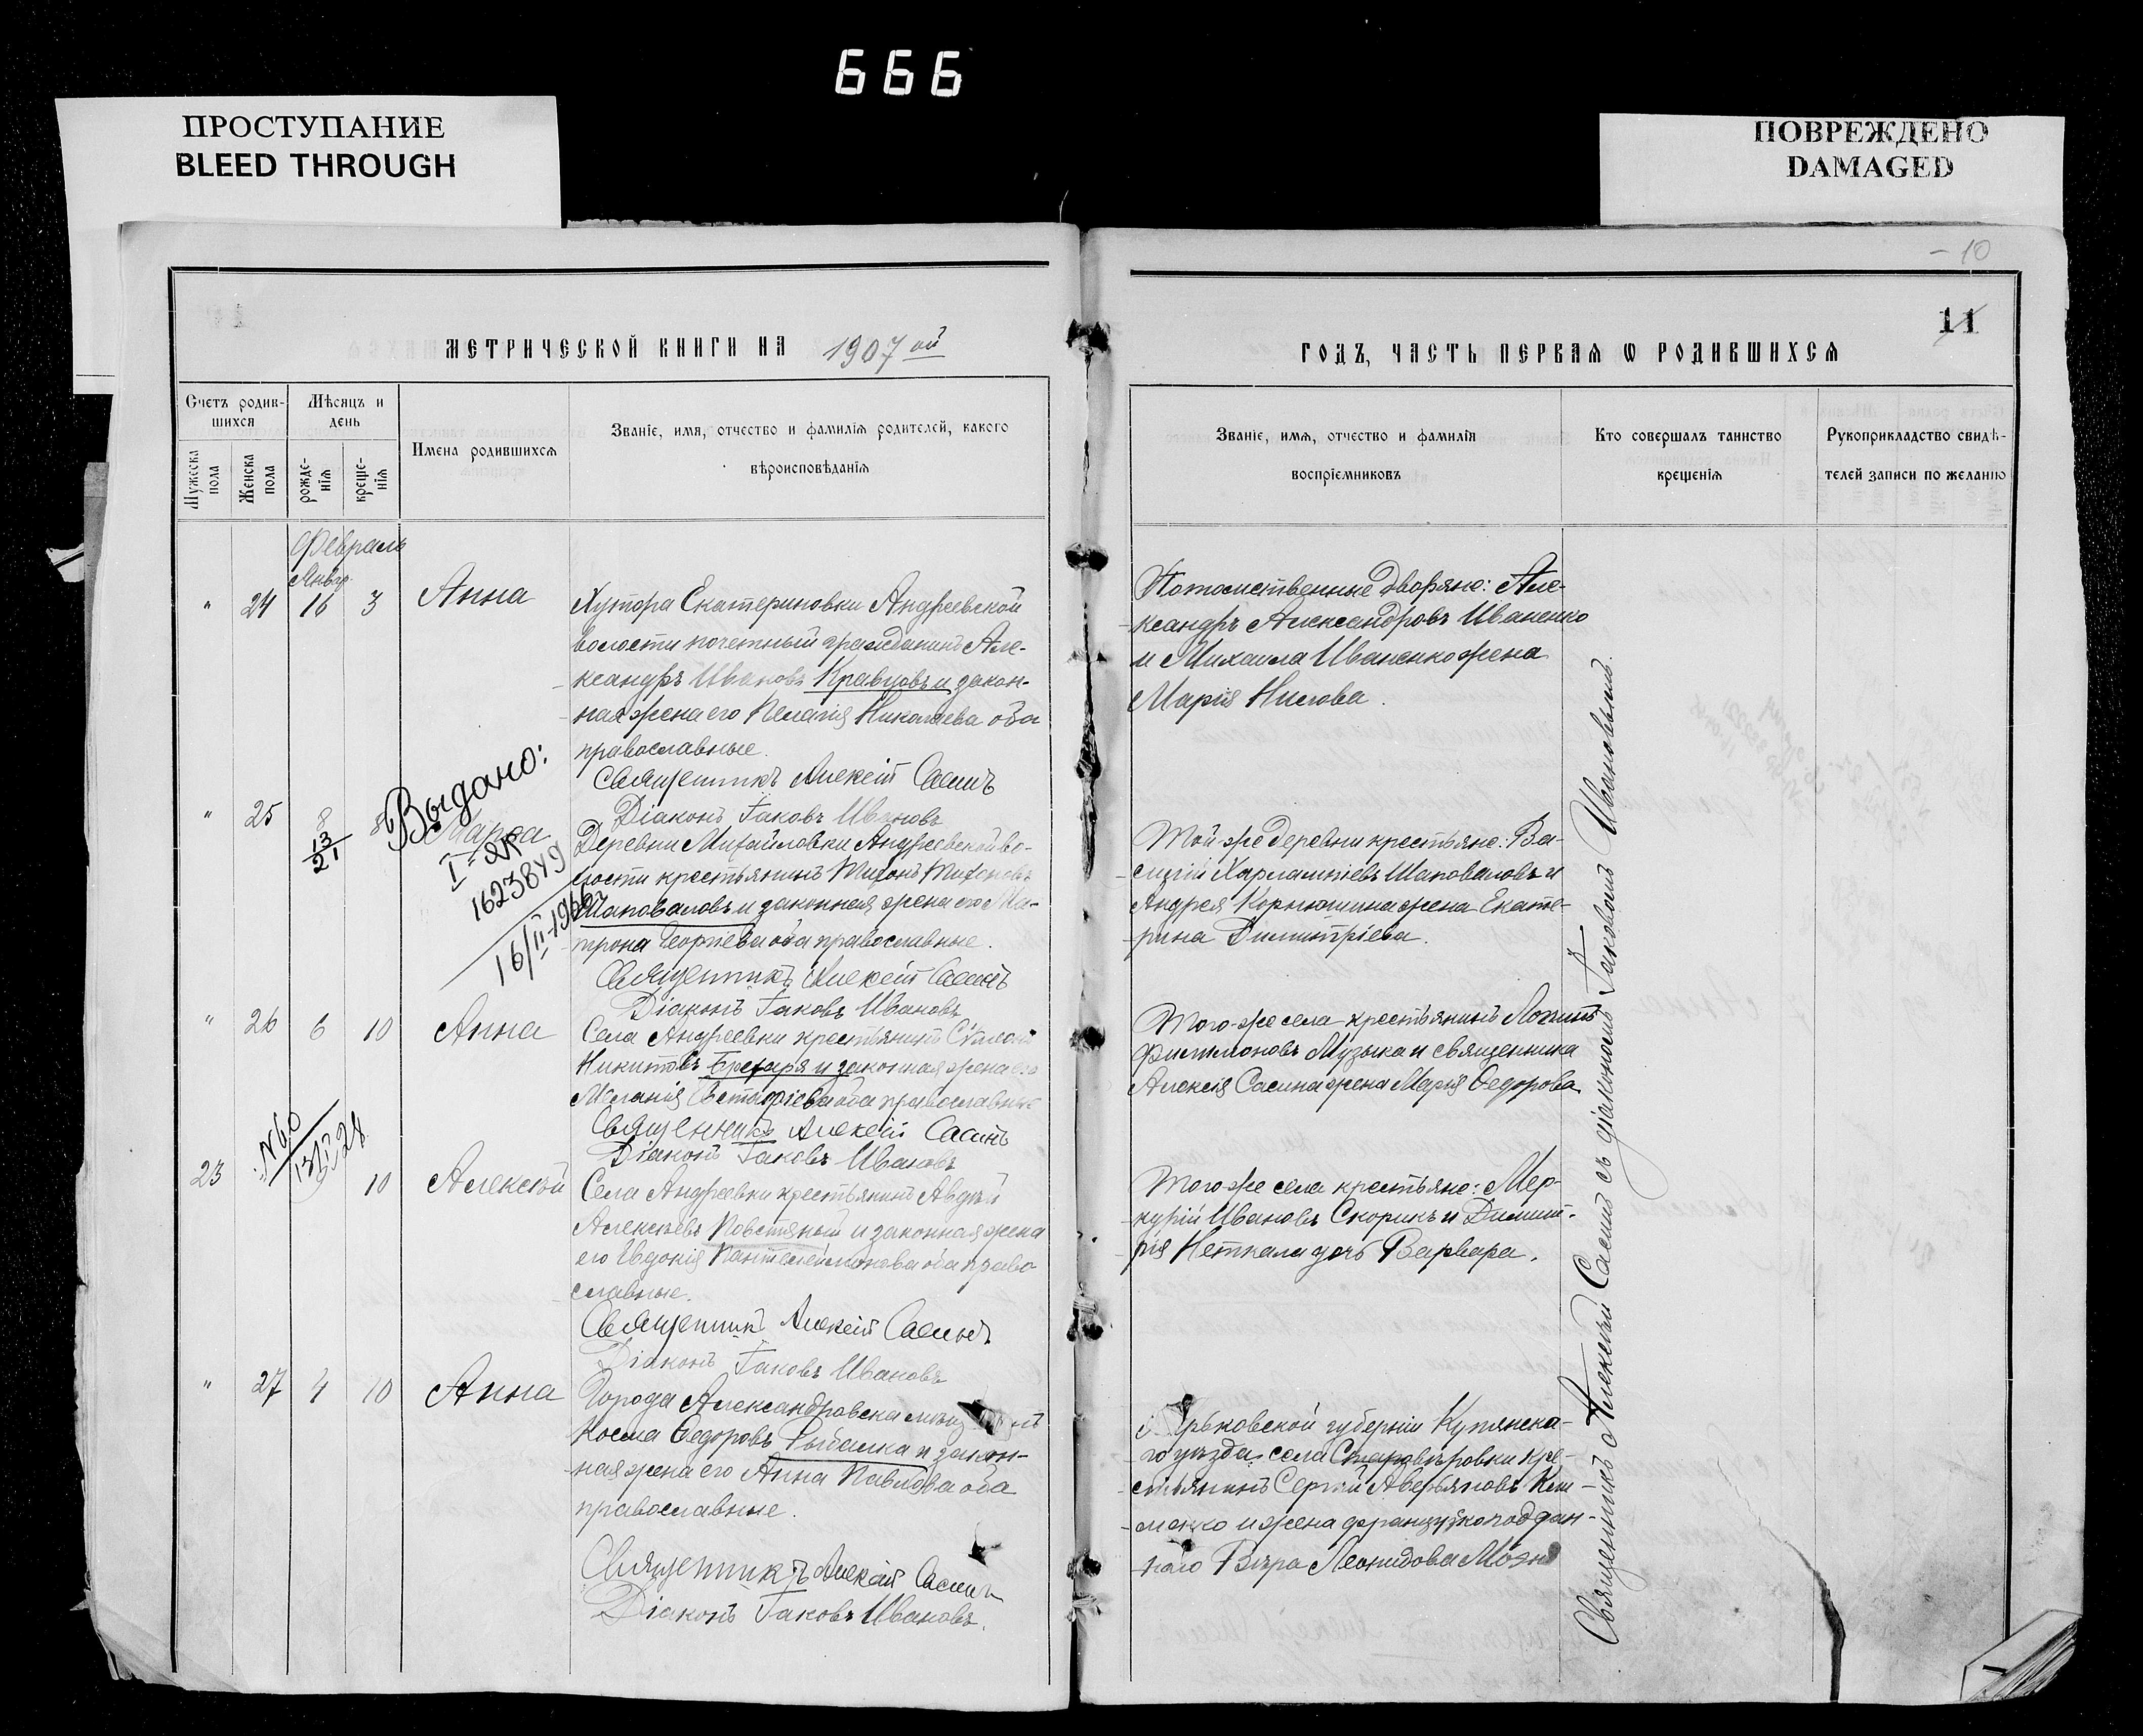 666
ПРОСТУПАНИЕ
BLEED THROUGH
ПОВРЕЖДЕНО
DAMAGED
- 10
11
МЕТРИЧЕСКОЙ КНИГИ НА 1907 ой
ГОДЪ, ЧАСТЬ ПЕРВАЯ Ѡ РОДИВШИХСЯ
Счетъ родив-
шихся
Мѣсяцъ и
день
Мужеска
пола
Женска
пола
рожде-
нія
креще-
нія
Имена родившихся
Званіе, имя, отчество и фамилія родителей, какого
вѣроисповѣданія
Званіе, имя, отчество и фамилія
воспріемниковъ
Кто совершалъ таинство
крещенія
Рукоприкладство свидѣ-
телей записи по желанію
Февраль
Январ.
" 24 16 3 Анна
Хутора Екатериновки Андреевской
волости почетный гражданинъ Але-
ксандръ Ивановъ Кравцовъ и закон-
ная жена его Пелагія Николаева оба
православные.
Священникъ Алексій Сасинъ
Діаконъ Іаковъ Ивановъ
Потомственные дворяне: Але-
ксандръ Александровъ Иваненко
и Михаила Иваненко жена
Марія Нилова.
" 25 8 8 Марѳа
13
21
Выдано:
I-ЯР
1623849
16/II-1966
Деревни Михайловки Андреевской во-
лости крестьянинъ Тихонъ Тихоновъ
Шаповаловъ и законная жена его Ма-
трона Георгіева оба православные.
Священникъ Алексій Сасинъ
Діаконъ Іаковъ Ивановъ
Той же деревни крестьяне: Ва-
силій Харлампіевъ Шаповаловъ и
Андрея Корнюшина жена Екате-
рина Димитріева.
" 26 6 10 Анна
Села Андреевки крестьянинъ Симеонъ
Никитовъ и законная жена его
Меланія Евстафіева оба православные
Священникъ Алексій Сасинъ
Діаконъ Іаковъ Ивановъ
Того-же села крестьянинъ Логинъ
Филимоновъ Музыка и священника
Алексія Сасина жена Марія Ѳедорова
№ 60
23 10 Алексѣй
Села Андреевки крестьянинъ Авдѣй
Алексѣевъ Повстяный и законная жена
его Евдокія Пантелеймонова оба право-
славные.
Священникъ Алексій Сасинъ
Діаконъ Іаковъ Ивановъ
Того же села крестьяне: Мер-
курій Ивановъ Скорикъ и Димит-
рія Неткала дочь Варвара.
" 27 4 10 Анна
Города Александровска
Косма Ѳедоровъ Рыбалка и закон-
ная жена его Анна Павлова оба
православные.
Священникъ Алексій Сасинъ
Діаконъ Іаковъ Ивановъ.
Харьковской губерніи Купянска-
го уѣзда, села Старовѣровки кре-
стьянинъ Сергѣй Аверьяновъ Кли-
менко и жена французкоподдан-
наго Вѣра Леонидова
Священникъ Алексѣй Сасинъ съ діакономъ Іаковомъ Ивановымъ.